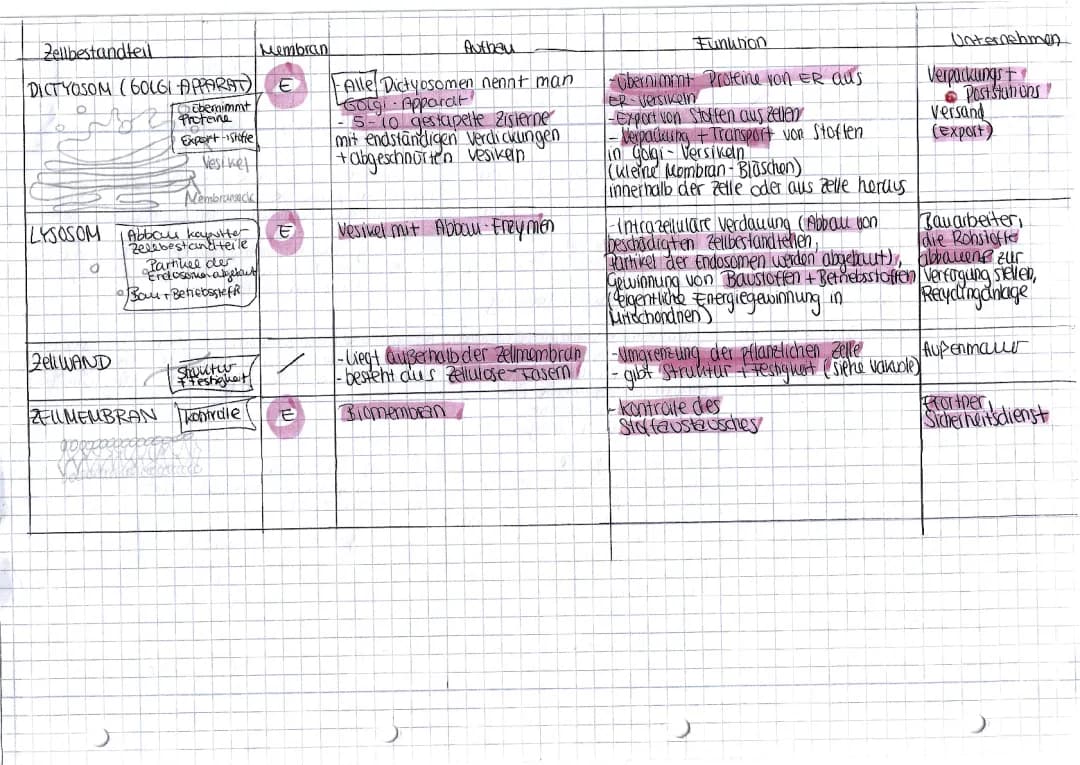 Zellbestandteil
Membran
Aufbau
Funktion
Unternehmen
DICTYOSOM (GOLGI-APPARAT)
übernimmt
Proteine
Export-Stoffe
Vesikel
E
Alle Dictyosomen nennt man
Golgi-Apparat
- 5-10 gestapelte Zisterne
mit endständigen Verdickungen
+ abgeschnürten Vesikeln
- übernimmt Proteine von ER aus
ER-Versikeln
- Export von Stoffen aus Zellen
- Verpackung + Transport von Stoffen
in Golgi-Versikeln
(kleine Membran-Bläschen)
innerhalb der Zelle oder aus Zelle heraus
Verpackungs +
Poststations
Versand
(Export)
LYSOSOM
Abbau kaputter
Zellbestandteile
Partikel der
Endosomen abgebaut
Bau + Betriebsstoffe
E
Vesikel mit Abbau-Enzymen
- Intrazelluläre Verdauung (Abbau von
beschädigten Zellbestandteilen,
Partikel der Endosomen werden abgebaut),
Gewinnung von Baustoffen + Betriebsstoffen
(eigentliche Energiegewinnung in
Bauarbeiter,
die Rohstoffe
abbauen zur
Verfügung stellen,
Recyclinganlage
ZELLWAND
Struktur
+ Festigkeit
- liegt außerhalb der Zellmembran
- besteht aus Zellulose-Fasern
- Umgrenzung der pflanzlichen Zelle
- gibt Struktur + Festigkeit (siehe Vakuole)
Außenmauer
ZELLMEMBRAN
Kontrolle
E
Biomembran
- Kontrolle des
Stoffaustausches
Pförtner,
Sicherheitsdienst